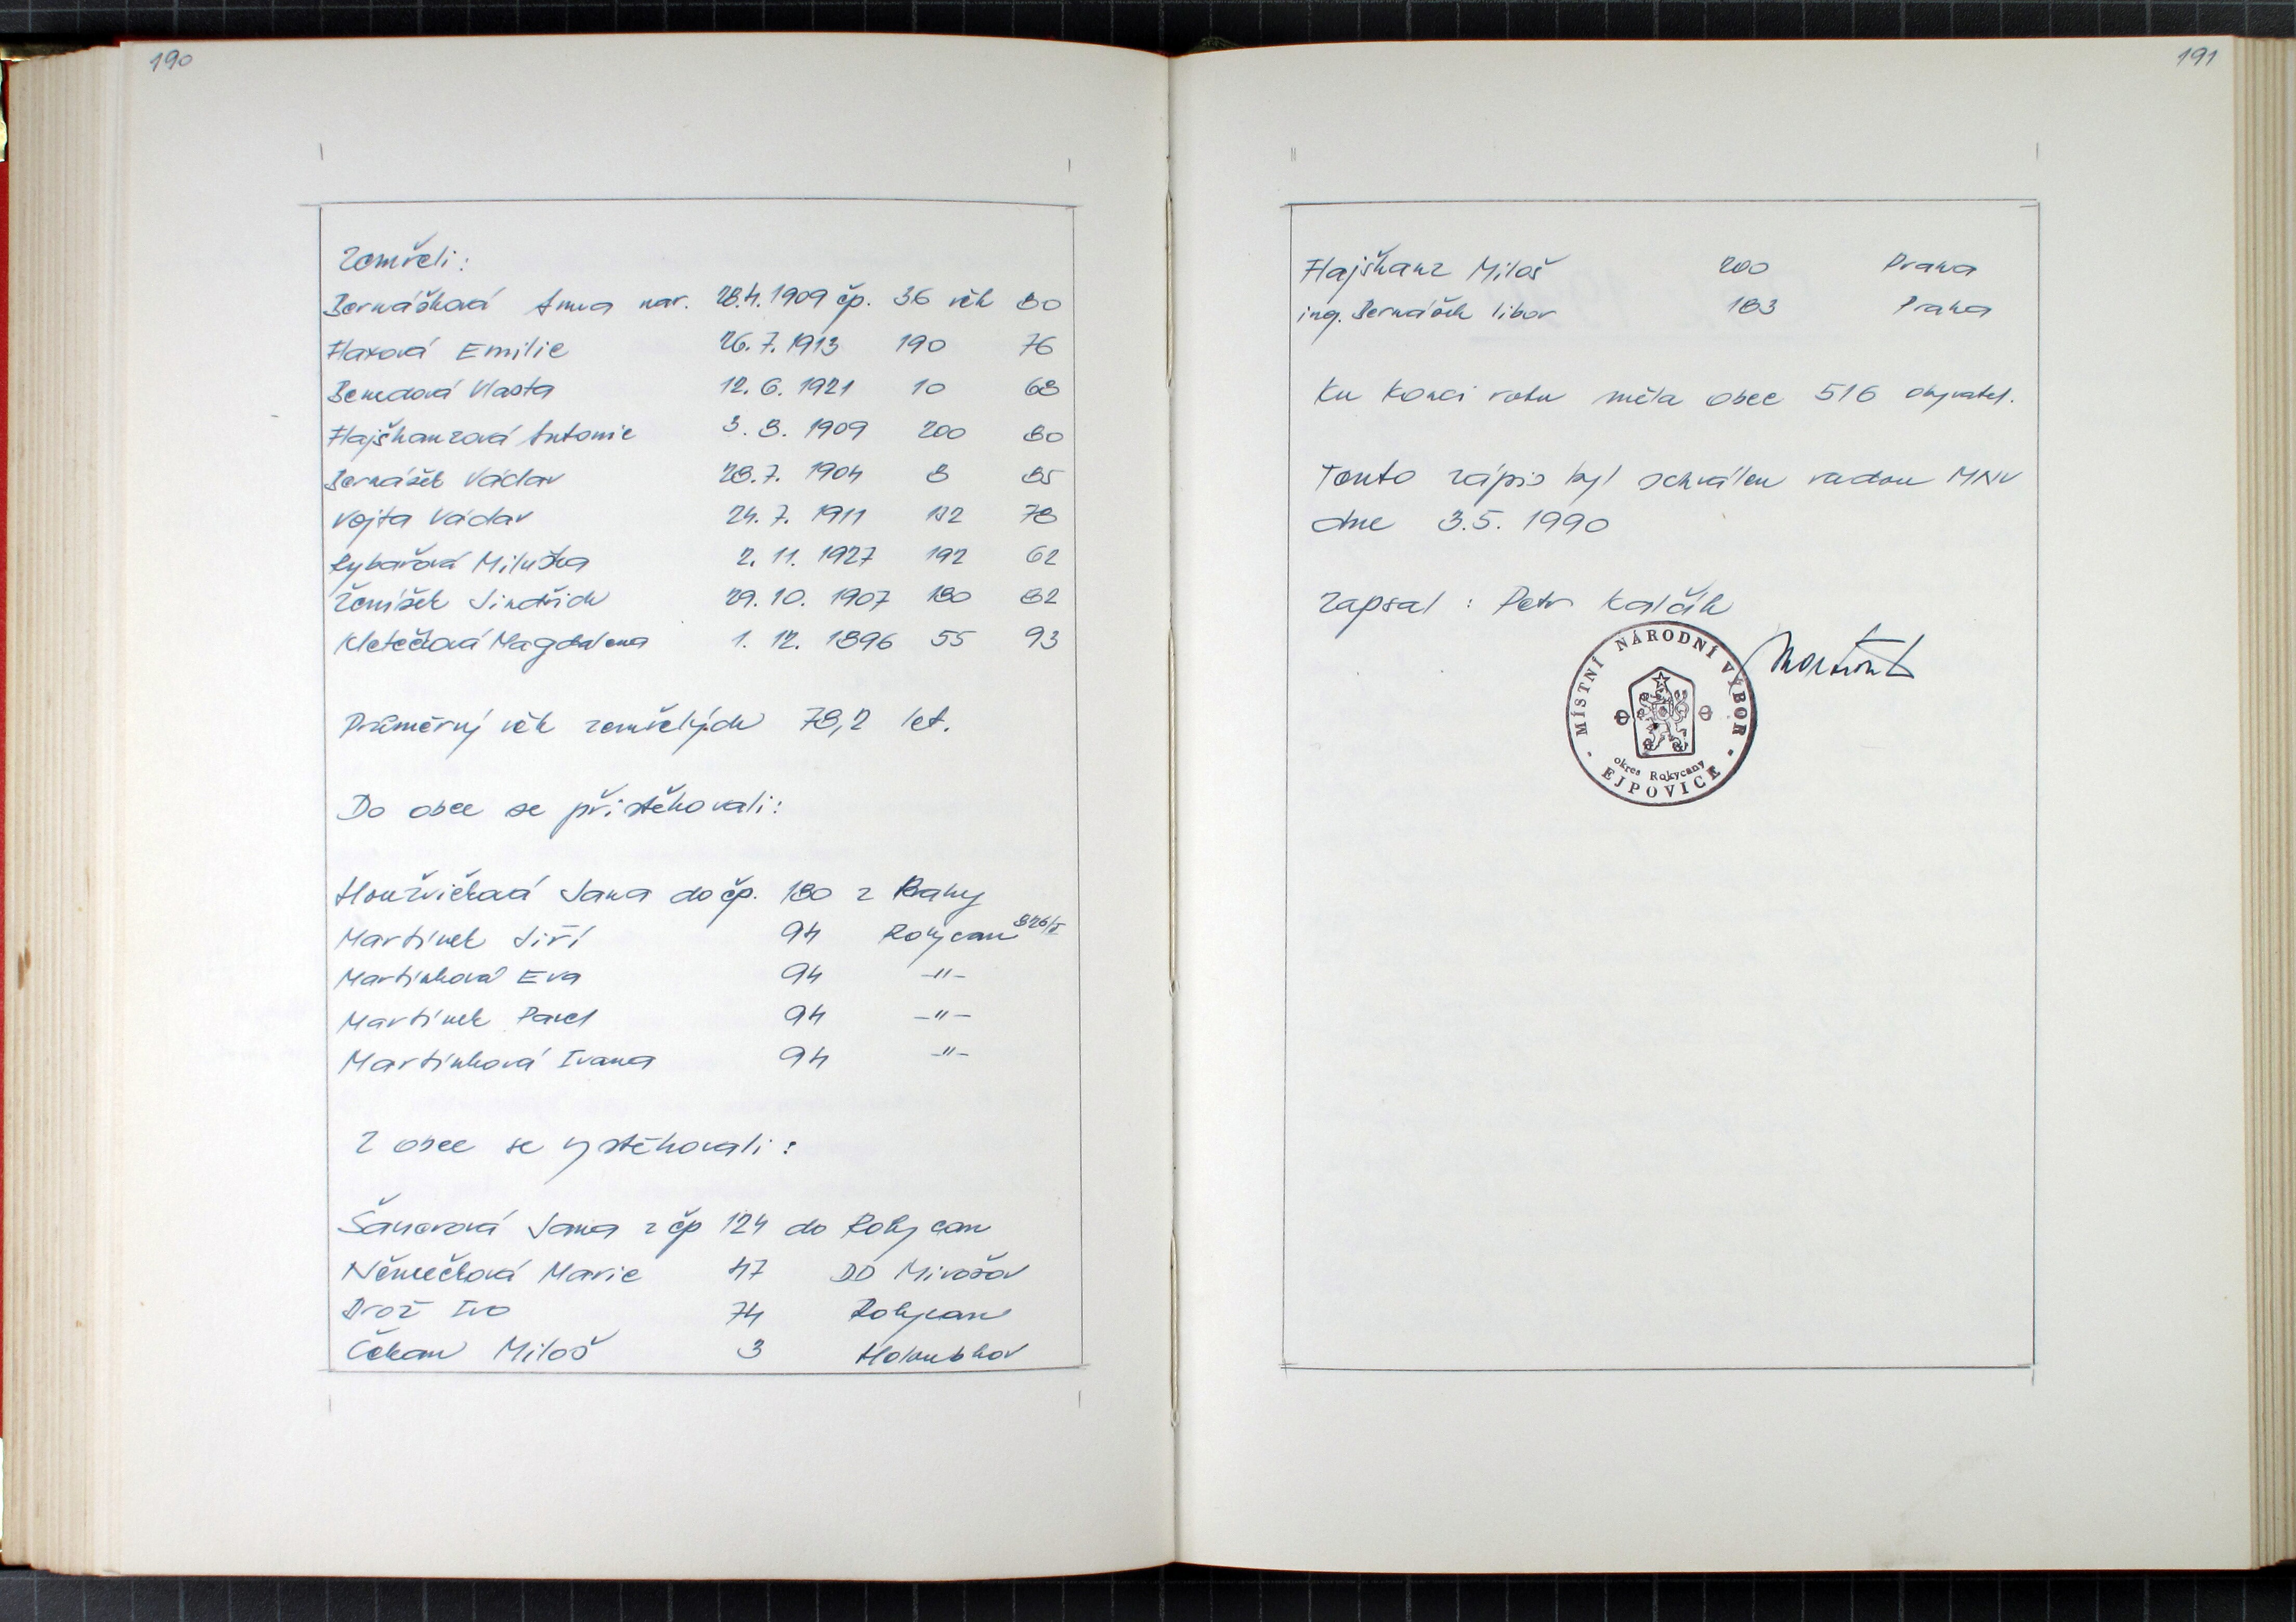 190
Zemřeli:
Bernášková Anna nar. 28.4.1909 čp. 36 věk 80
Haxová Emilie 26.7.1913 190 76
Benedová Vlasta 12.6.1921 10 68
Hajšhanzová Antonie 3.8.1909 200 80
Bernášek Václav 28.7.1904 8 85
Vojta Václav 24.7.1911 112 78
Rybařová Miluška 2.11.1927 192 62
Žemíšek Jindřich 29.10.1907 180 82
Kletečková Magdalena 1.12.1896 55 93
Průměrný věk zemřelých 78,2 let.
Do obce se přistěhovali:
Houžvičková Jana do čp. 180 z Prahy
Martínek Jiří 94 Rokycan 826/I
Martínková Eva 94 -"-
Martínek Pavel 94 -"-
Martínková Ivana 94 -"-
Z obce se vystěhovali:
Jana z čp 124 do Rokycan
Němečková Marie 47 DD Mirošov
Brož Ivo 74 Rokycan
Čekan Miloš 3 Holoubkov
191
Hajšhanz Miloš 200 Praha
ing. Bernášek Libor 183 Praha
Ku konci roku měla obec 516 obyvatel.
Tento zápis byl schválen radou MNV
dne 3.5.1990
Zapsal: Petr Kalčík
MÍSTNÍ NÁRODNÍ VÝBOR
okres Rokycany
EJPOVICE